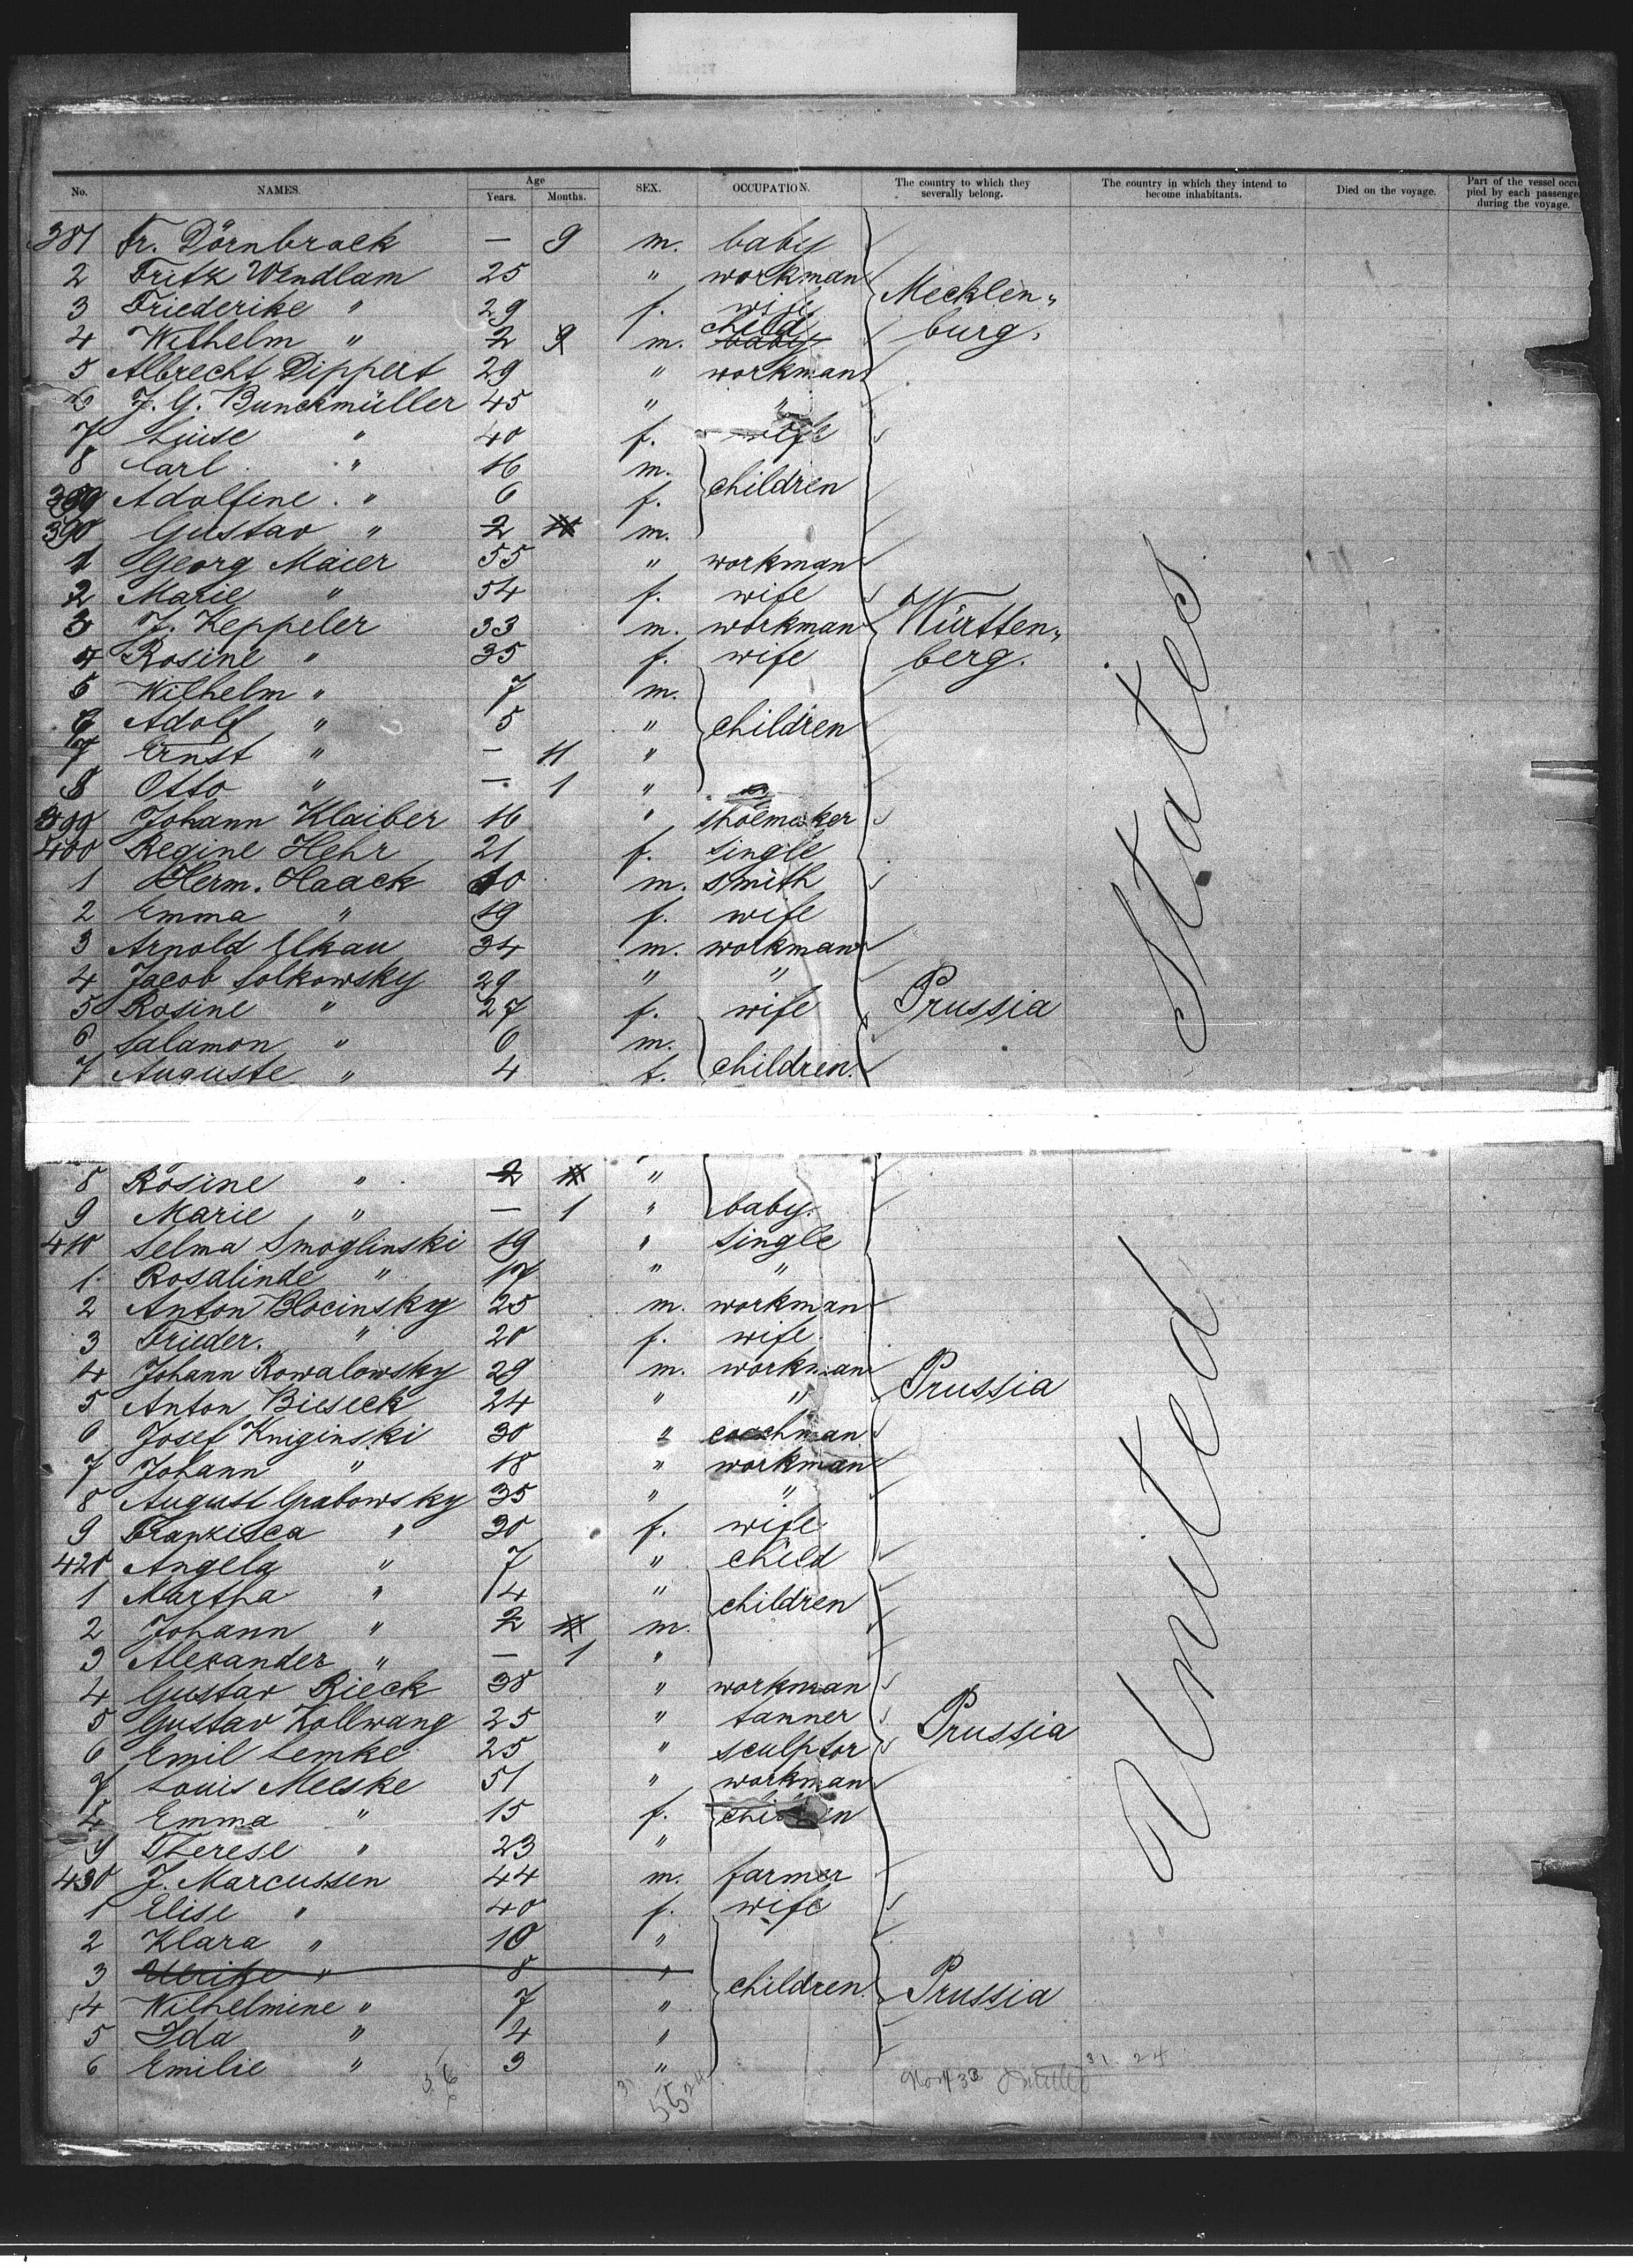 No. NAMES. Age Years. Months. SEX. OCCUPATION. The country to which they severally belong. The country in which they intend to become inhabitants. Died on the voyage. Part of the vessel occupied by each passenger during the voyage.
381 Fr. Dörnbrack — 9 m. baby
2 Fritz Wendlam 25 " workman
Mecklen„
3 Friederike " 29 f. wife
4 Wilhelm " 2 9 m. child baby
burg.
5 Albrecht Dippert 29 " workman
6 J. G. Bunckmüller 45 " "
7 Luise " 40 f. wife
8 Carl " 16 m.
children
389 Adolfine " 6 f.
390 Gustav " 2 m.
1 Georg Maier 55 " workman
2 Marie " 54 f. wife
3 J. Keppeler 33 m. workman Württen„
4 Rosine " 35 f. wife berg.
5 Wilhelm " 7 m.
6 Adolf " 5 " children
7 Ernst " — 11 "
8 Otto " — 1 "
399 Johann Klaiber 16 " shoemaker
400 Regine Hehr 21 f. single
1 Herm. Haack 40 m. smith
2 Emma " 19 f. wife
3 Arnold Elkau 34 m. workman
4 Jacob Solkowsky 29 " "
5 Rosine " 27 f. wife Prussia
6 Salamon " 6 m.
7 Auguste " 4 f. children.
8 Rosine " 2 "
9 Marie " — 1 " baby.
410 Selma Smoglinski 19 " single
1 Rosalinde " 17 " "
2 Anton Blocinsky 25 m. workman
3 Frieder. " 20 f. wife
4 Johann Kowalowsky 29 m. workman
Prussia
5 Anton Bieseck 24 " "
6 Josef Kniginski 30 " coachman
7 Johann " 18 " workman
8 August Grabowsky 35 " "
9 Franzisca " 30 f. wife
420 Angela " 7 " child
1 Martha " 4 " children
2 Johann " 2 m.
3 Alexander " — 1 "
4 Gustav Rieck 38 " workman
5 Gustav Kollwang 25 " tanner Prussia
6 Emil Lemke 25 " sculptor
7 Louis Meeske 51 " workman
8 Emma " 15 f. children
9 Therese " 23 "
430 J. Marcussen 44 m. farmer
1 Elise " 40 f. wife
2 Klara " 10 "
3 Ulrike " 8 "
children Prussia
4 Wilhelmine " 7 "
5 Ida " 4 "
6 Emilie " 3 "
United States
31 24